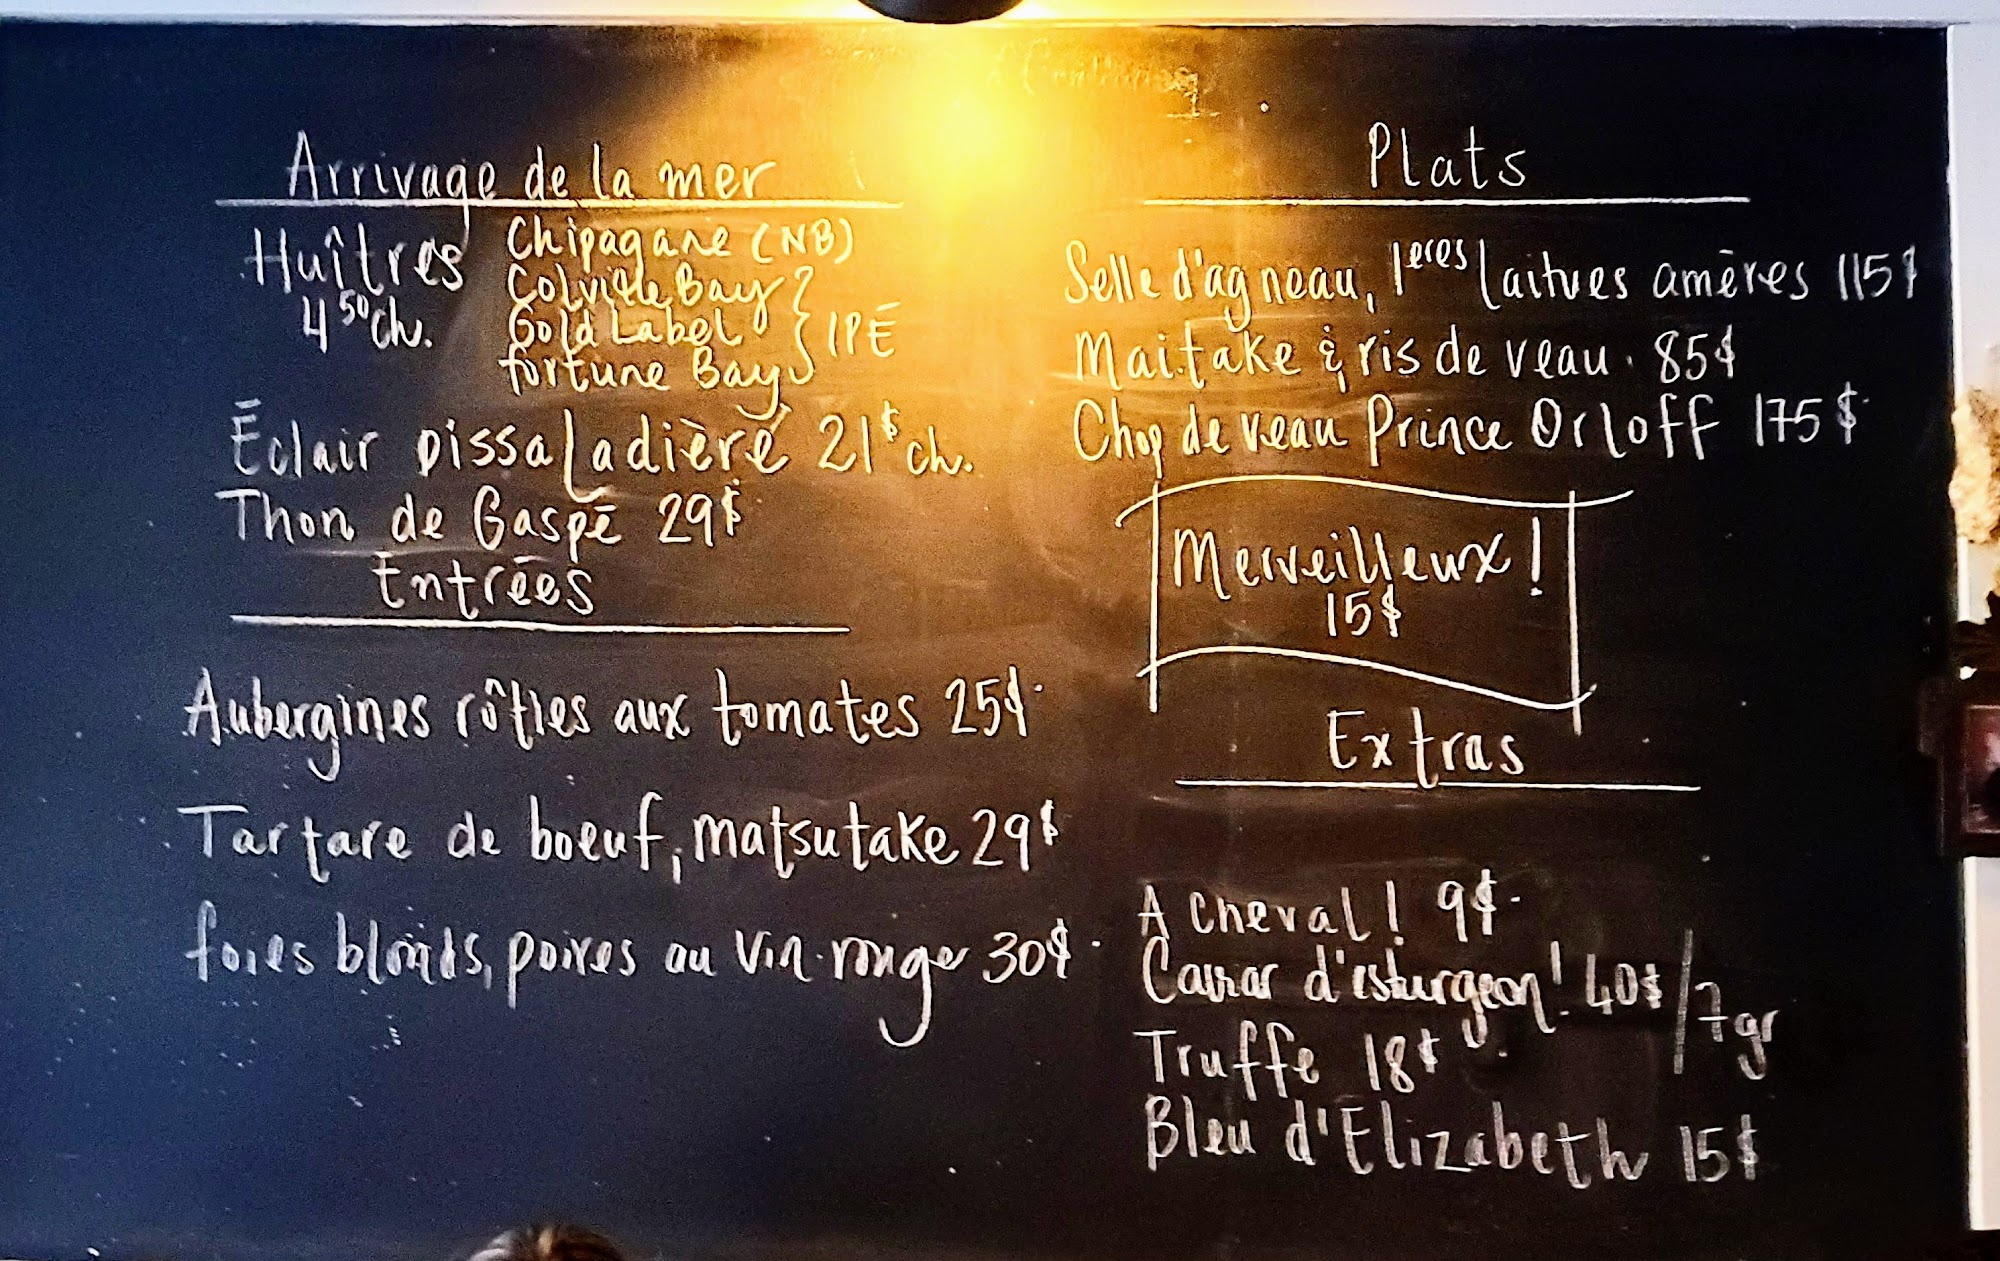 Arrivage de la mer
Huîtres
4 50 ch.
Chipagane (NB)
Colville Bay
Gold Label
fortune Bay
IPÉ
Éclair pissaladière 21$ ch.
Thon de Gaspé 29$
Entrées
Aubergines rôties aux tomates 25$
Tartare de boeuf, matsutake 29$
foies blonds, poires au vin rouge 30$
Plats
Selle d'agneau, 1eres laitues amères 115$
Maitake & ris de veau 85$
Chop de veau Prince Orloff 175$
Merveilleux !
15$
Extras
A cheval ! 9$
Caviar d'esturgeon ! 40$/7gr
Truffe 18$
Bleu d'Elizabeth 15$